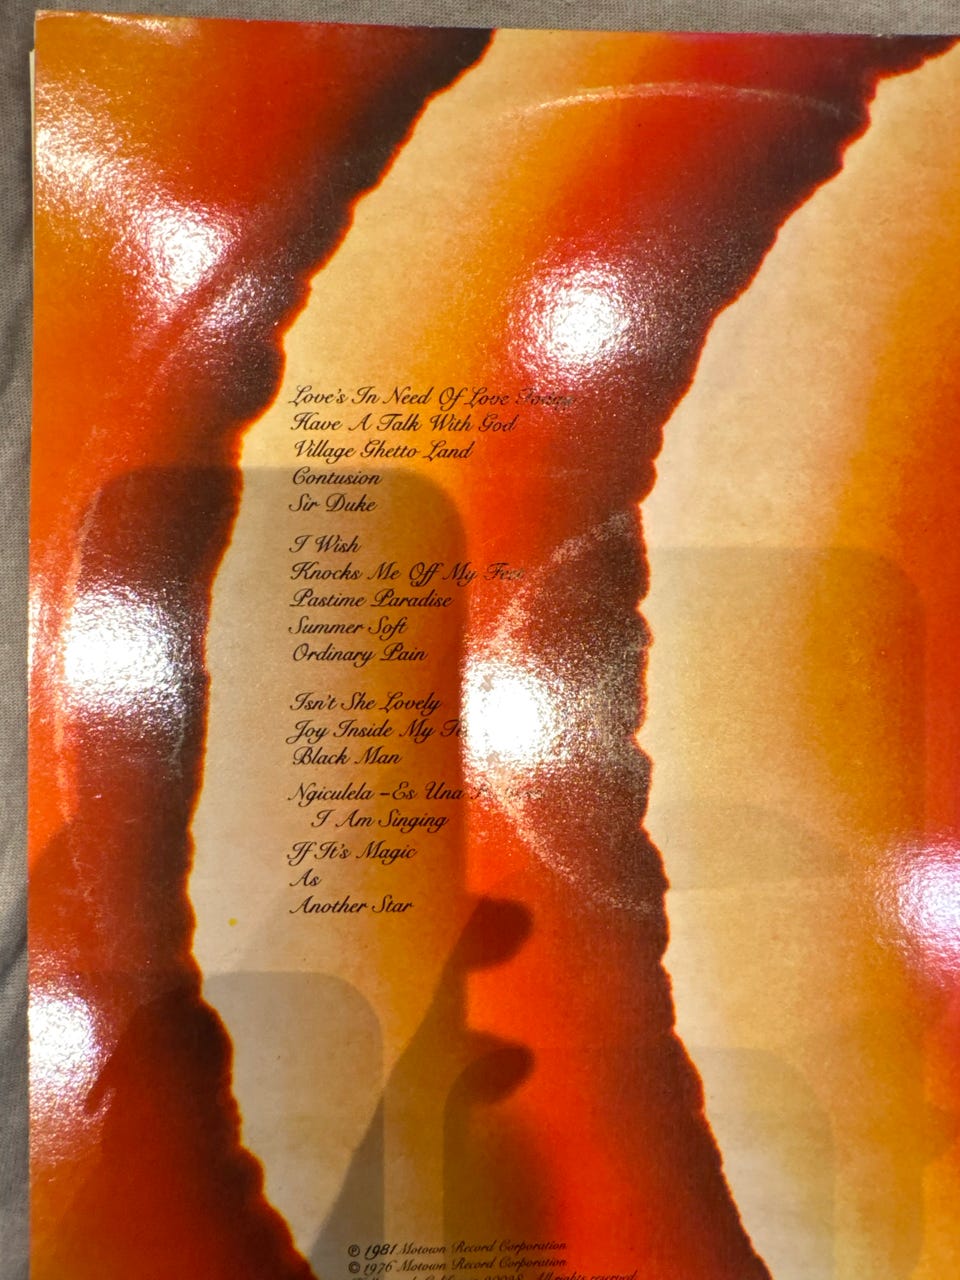 Love's In Need Of Love Today
Have A Talk With God
Village Ghetto Land
Contusion
Sir Duke
I Wish
Knocks Me Off My Feet
Pastime Paradise
Summer Soft
Ordinary Pain
Isn't She Lovely
Joy Inside My
Black Man
Ngiculela – Es Una
I Am Singing
If It's Magic
As
Another Star
℗ 1981 Motown Record Corporation
© 1976 Motown Record Corporation
California All rights reserved.